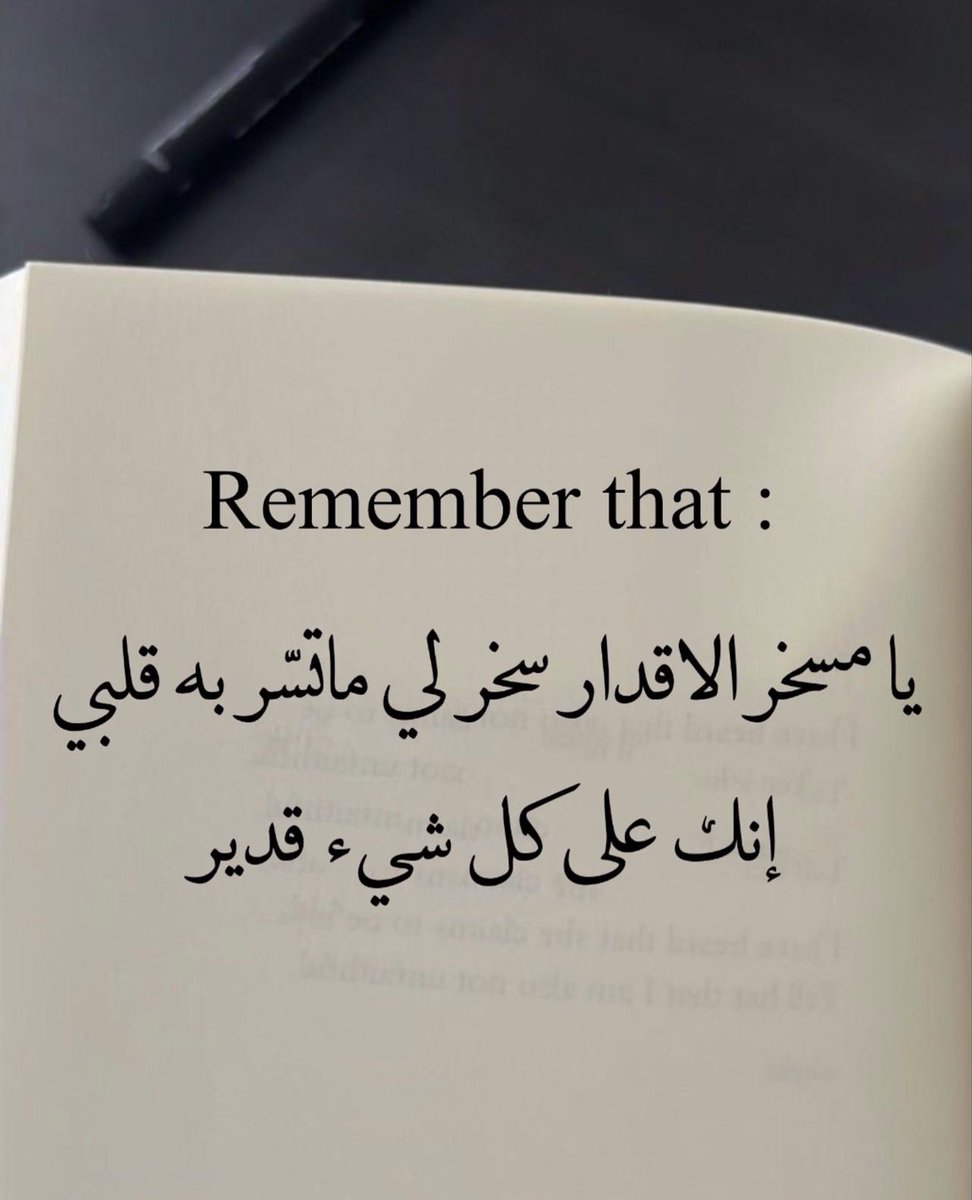 Remember that :
يا مسخر الاقدار سخر لي ماتسّر به قلبي
إنك على كل شيء قدير